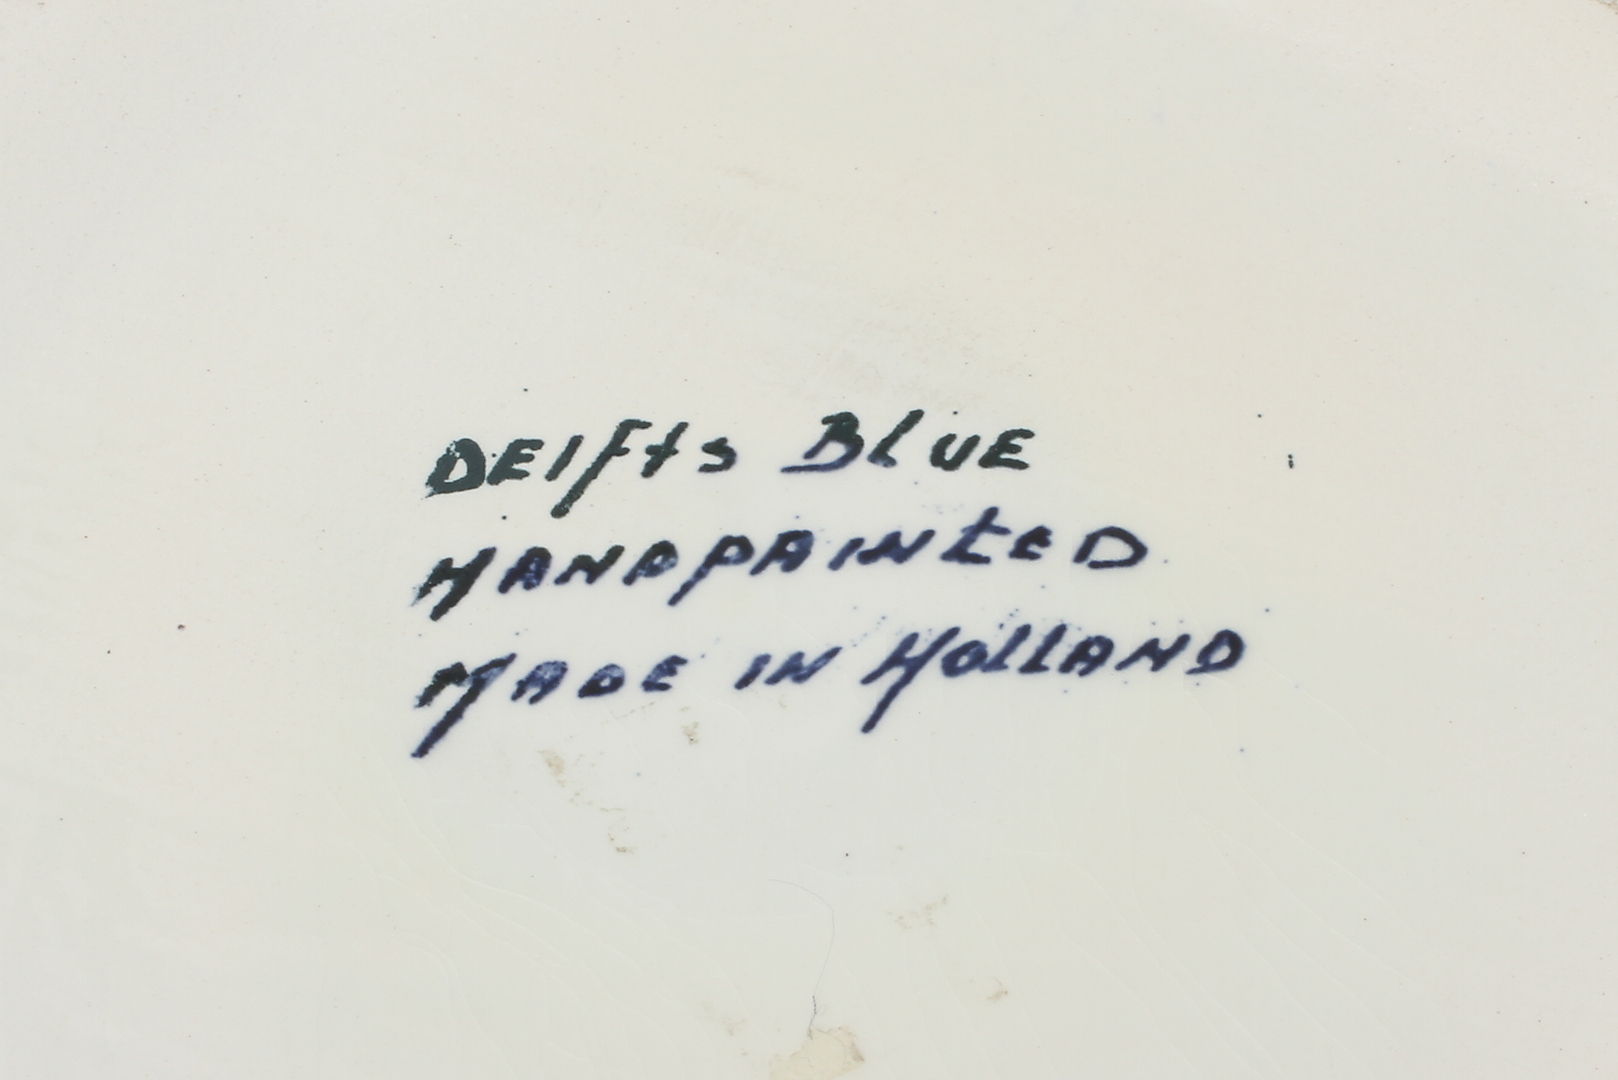 DElfts BluE
HANDPAINtED
MADE IN HOllAND